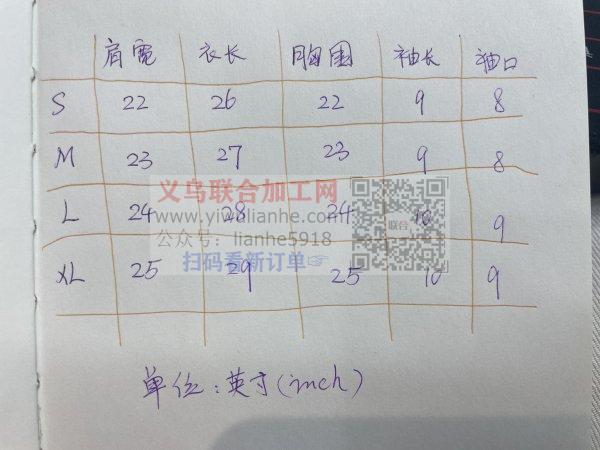 肩宽 衣长 胸围 袖长 袖口
S 22 26 22 9 8
M 23 27 23 9 8
义乌联合加工网
L 24 28 24 10 9
www.yiwulianhe.com
公众号：lianhe5918
联合
扫码看新订单👉
XL 25 29 25 10 9
单位：英寸(inch)